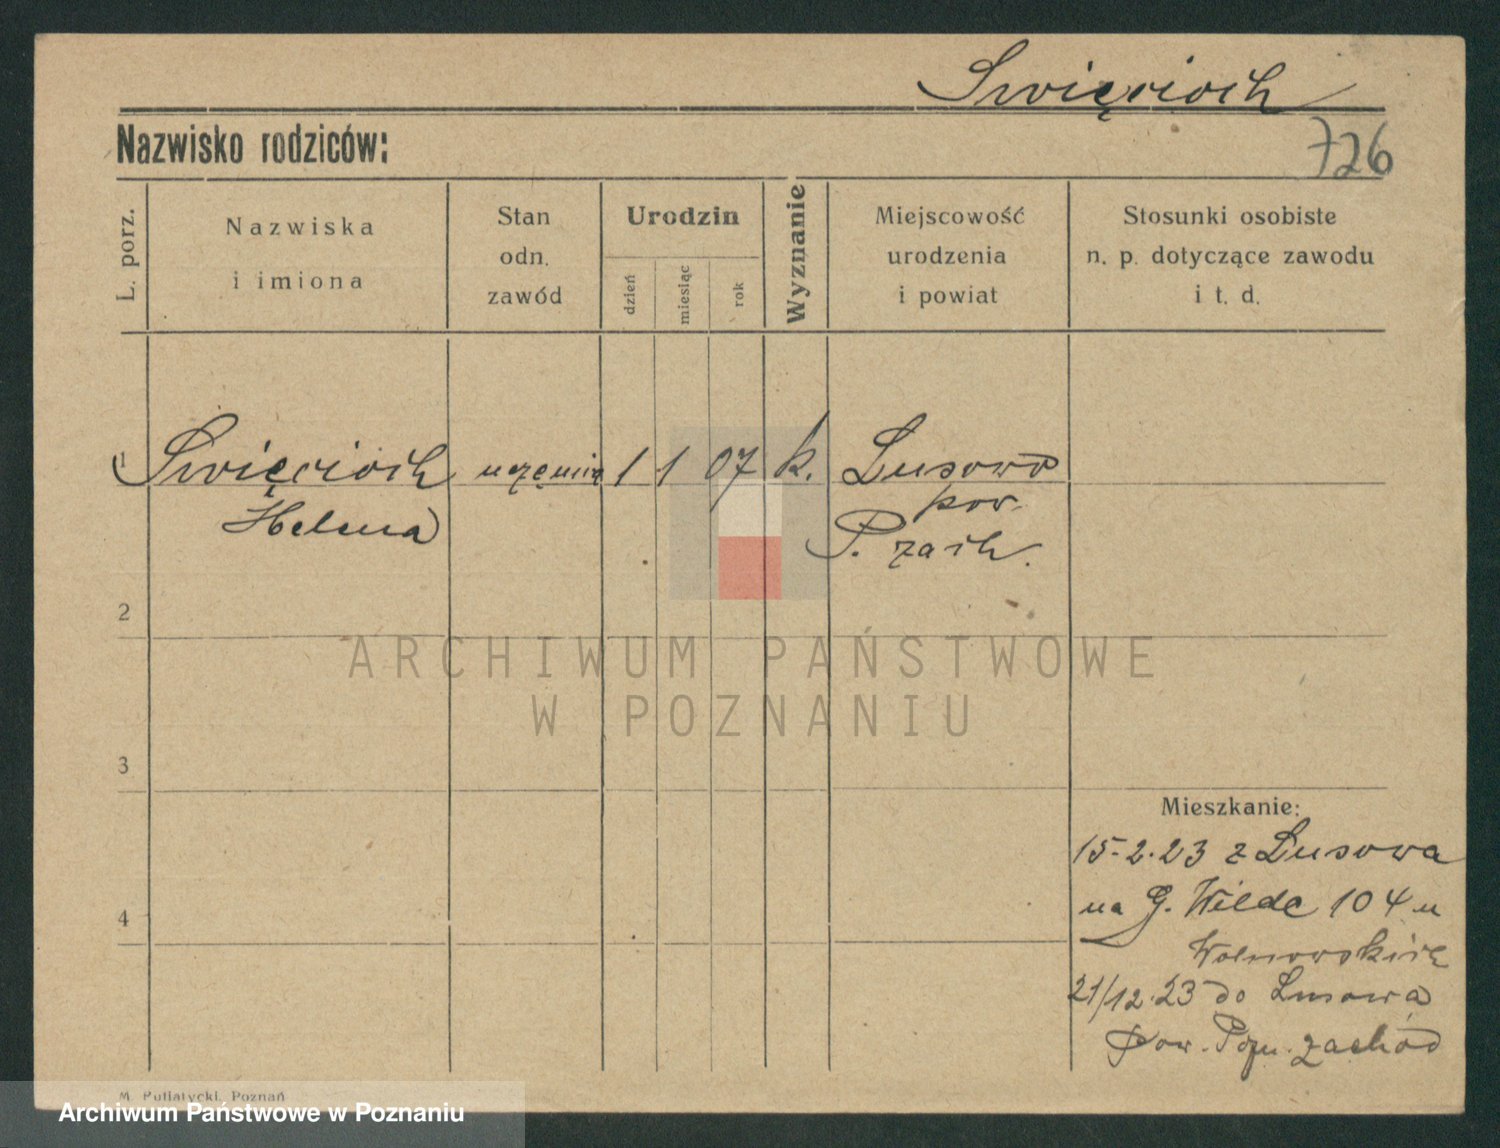 Święcioch
Nazwisko rodziców:
726
L. porz.
Nazwiska
i imiona
Stan
odn.
zawód
Urodzin
dzień
miesiąc
rok
Wyznanie
Miejscowość
urodzenia
i powiat
Stosunki osobiste
n. p. dotyczące zawodu
i t. d.
1 Święcioch uczenica 1 1 07 k. Lusowo
Helena
pow.
P. zach.
2
ARCHIWUM PAŃSTWOWE
W POZNANIU
3
Mieszkanie:
15.2.23 z Lusowa
na G. Wilde 104 u
4
21/12.23 do Lusowa
pow. Pozn. zachód
M. Putiatycki, Poznań
Archiwum Państwowe w Poznaniu